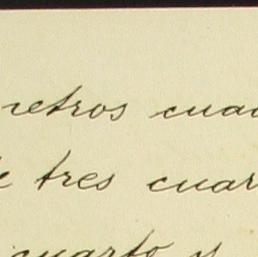 metros cuad
de tres cuar
cuarto y